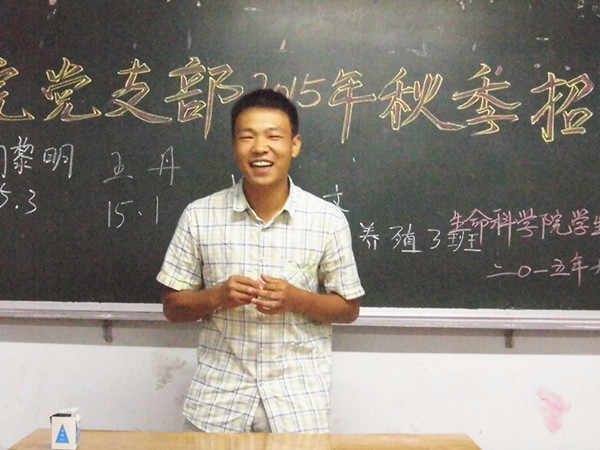 院党支部2015年秋季招
黎明 王丹
5.3 15.1 文
养殖了班 生命科学院学生
二〇一五年九